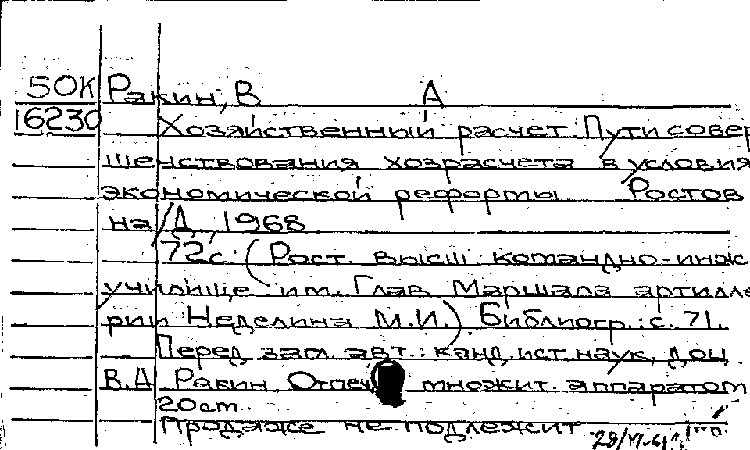 50К Ракин, В А
16230 Хозяйственный расчет Пути совер
шенствования хозрасчета в условия
экономической реформы Ростов
на/Д, 1968
72с. (Рост высш командно-инж
училище им. Глав Маршала артилле
рии Неделина М.И.). Библиогр.: с. 71.
Перед загл авт.: канд ист наук, доц
В.А Ракин Отпеч множит аппаратом
20см
Продаже не подлежит